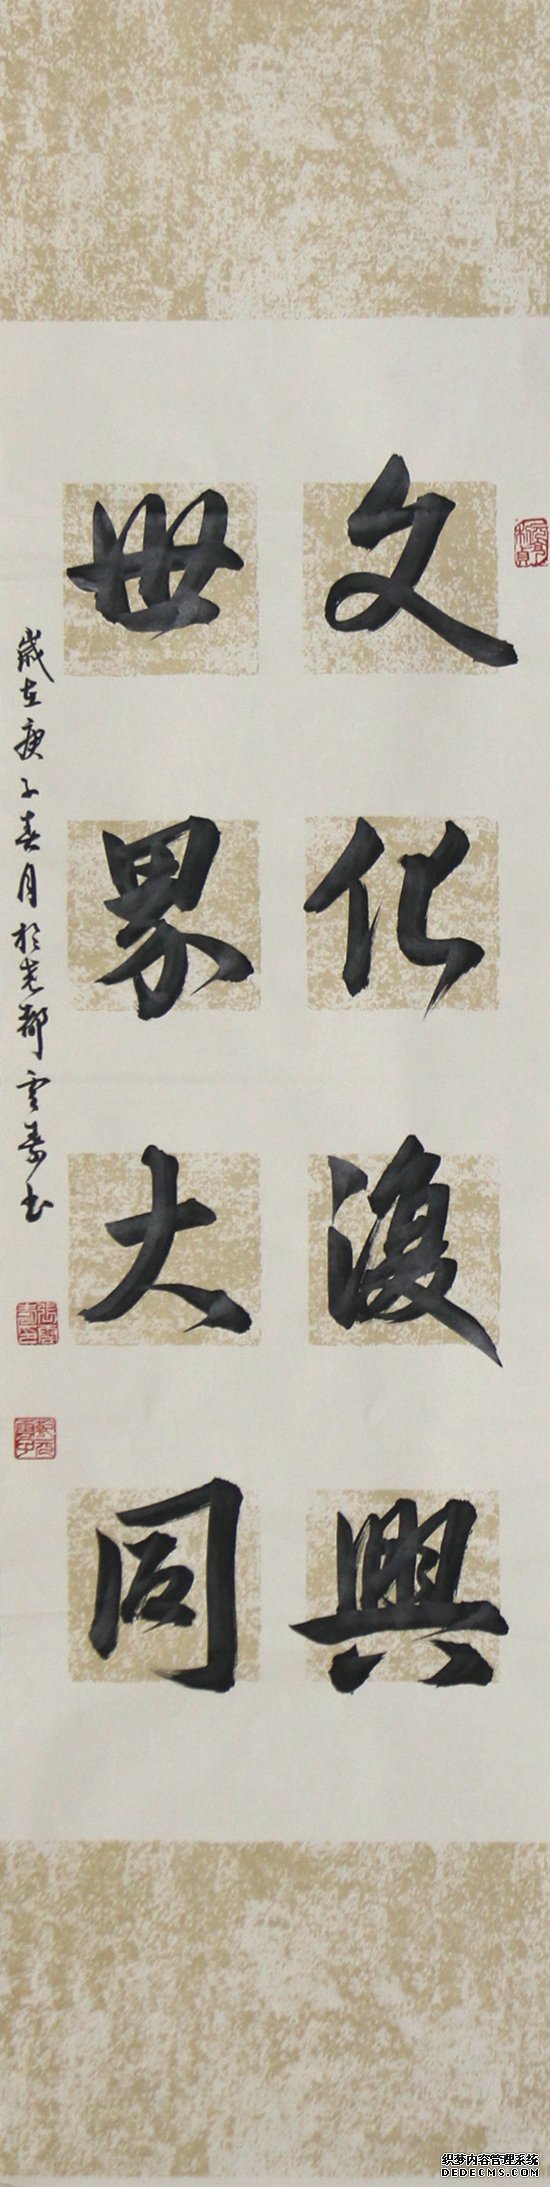 文化復興
世界大同
歲在庚子春月於光都雲秀書
织梦内容管理系统
DEDECMS.COM